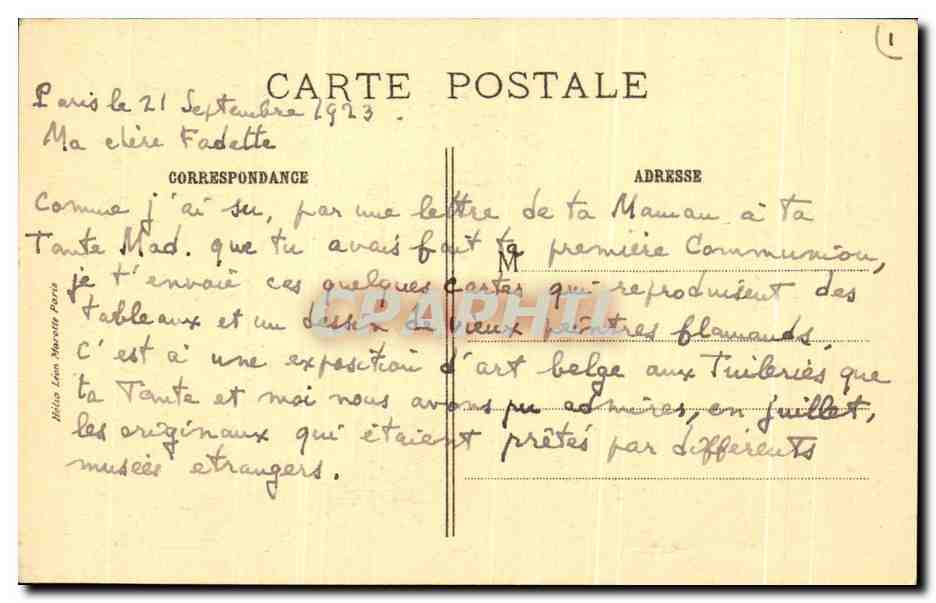 1
CARTE POSTALE
Paris le 21 Septembre 1923.
Ma chère Fadette
CORRESPONDANCE
ADRESSE
Comme j'ai su, par une lettre de ta Maman à ta
Tante Mad. que tu avais fait ta première Communion,
M
je t'envoie ces quelques cartes qui reproduisent des
tableaux et un dessin de vieux peintres flamands.
C'est à une exposition d'art belge aux Tuileries que
ta Tante et moi nous avons pu admirer, en juillet,
les originaux qui étaient prêtés par différents
musées etrangers.
Hélio Léon Marotte Paris
CPAPHIL